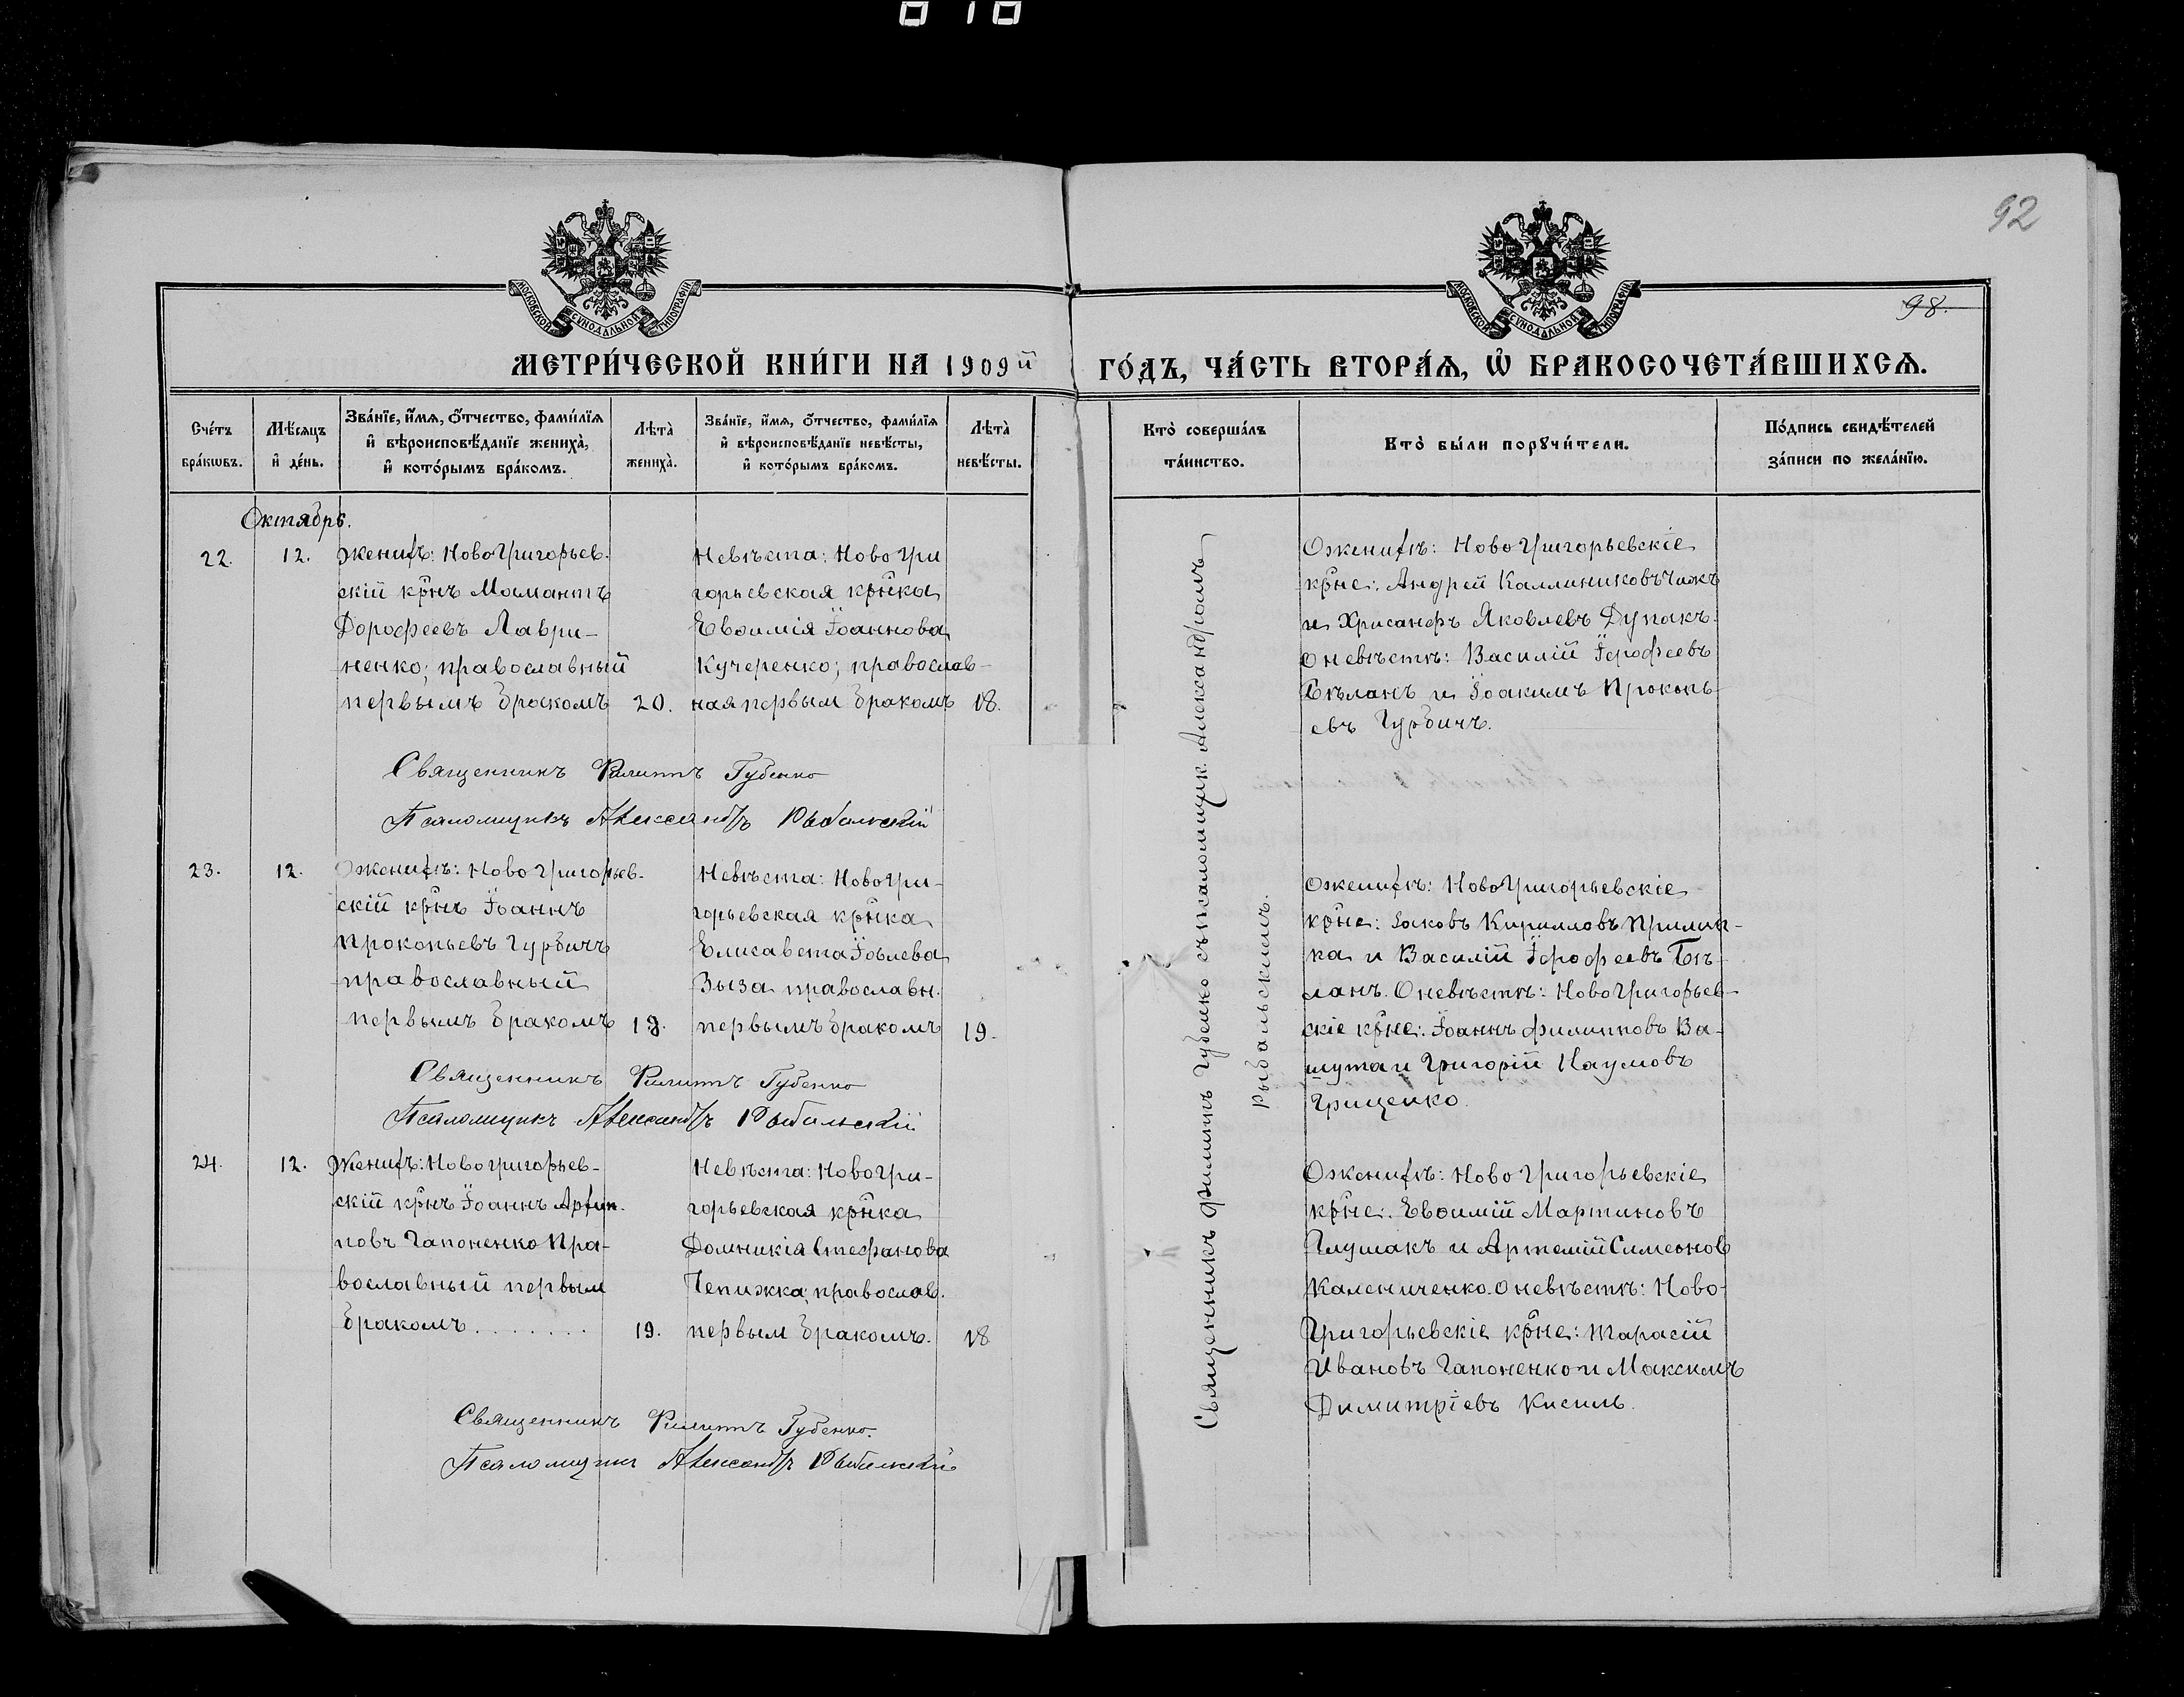 92
98.
МОСКОВСКОЙ СѴНОДАЛЬНОЙ ТИПОГРАФІИ
МОСКОВСКОЙ СѴНОДАЛЬНОЙ ТИПОГРАФІИ
МЕТРИ́ЧЕСКОЙ КНИ́ГИ НА 1909й ГО́ДЪ, ЧА́СТЬ ВТОРА́Ѧ, Ѡ҆ БРАКОСОЧЕТА́ВШИХСѦ.
Сче́тъ
бра́кѡвъ.
Мѣ́сѧцъ
и҆ де́нь.
Зва́нїе, и҆́мѧ, ѻ҆́тчество, фами́лїѧ
и҆ вѣроисповѣ́данїе жениха̀,
и҆ кото́рымъ бра́комъ.
Лѣта̀
жениха̀.
Зва́нїе, и҆́мѧ, ѻ҆́тчество, фами́лїѧ
и҆ вѣроисповѣ́данїе невѣ́сты,
и҆ кото́рымъ бра́комъ.
Лѣта̀
невѣ́сты.
Кто̀ соверша́лъ
та́инство.
Кто̀ бы́ли порꙋчи́тели.
По́дпись свидѣ́телей
за́писи по жела́нїю.
Октябрь.
22.
12.
Женихъ: НовоГригорьев-
скій кр̃нъ Мамантъ
Дорофеевъ Лаври-
ненко; православный
первымъ бракомъ
20.
Невѣста: НовоГри
горьевская кр̃нка
Евѳимія Іоаннова
Кучеренко; православ-
ная первым бракомъ
18.
О женихѣ: НовоГригорьевскіе
кр̃не: Андрей Каллиниковъ Чижъ
и Хрисанфъ Яковлевъ Дупакъ.
О невѣстѣ: Василій Іерофеевъ
Бѣланъ и Іоакимъ Прокопь-
евъ Гурбичъ.
Священникъ Филиппъ Губенко
Псаломщикъ Александръ Рыбальскій
23.
12.
О женихѣ: НовоГригорьев-
скій кр̃нъ Іоаннъ
Прокопьевъ Гурбичъ
православный
первымъ бракомъ
18.
Невѣста: НовоГри-
горьевская кр̃нка
Елисавета Іовлева
Зыза православн.
первымъ бракомъ
19.
О женихѣ: НовоГригорьевскіе
кр̃не: Іаковъ Кирилловъ Прилип-
ка и Василій Іерофеевъ Бѣ-
ланъ. О невѣстѣ: НовоГригорьев-
скіе кр̃не: Іоаннъ Филипповъ Ва-
шута и Григорій Наумовъ
Грищенко.
Священникъ Филиппъ Губенко
Псаломщикъ Александръ Рыбальскій
24.
12.
Женихъ: НовоГригорьев-
скій кр̃нъ Іоаннъ Архип-
повъ Гапоненко Пра-
вославный первым
бракомъ.......
19.
Невѣста: НовоГри-
горьевская кр̃нка
Домникія Стефанова
Чепижка, православ.
первым бракомъ.
18
О женихѣ: НовоГригорьевскіе
кр̃не: Евѳимій Мартиновъ
Глушакъ и Артемій Симеонов
Калениченко. О невѣстѣ: Ново-
Григорьевскіе кр̃не: Тарасій
Ивановъ Гапоненко и Максимъ
Димитріевъ Кисиль.
Священникъ Филиппъ Губенко.
Псаломщикъ Александръ Рыбальскій
Священникъ Филиппъ Губенко съ псаломщик. Александромъ
Рыбальскимъ.